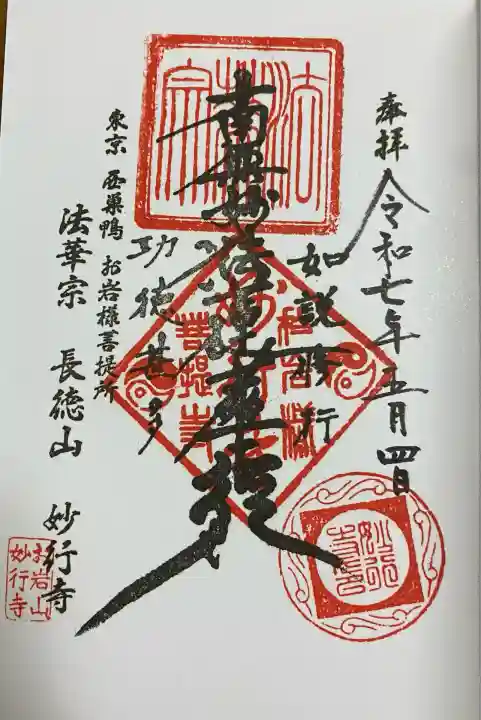 奉拝
令和七年五月四日
如説修行
南無妙法蓮華経
功徳甚多
東京 西巣鴨 お岩様菩提所
法華宗 長徳山 妙行寺
法華宗
お岩様
菩提寺
妙行寺
お岩山
妙行寺